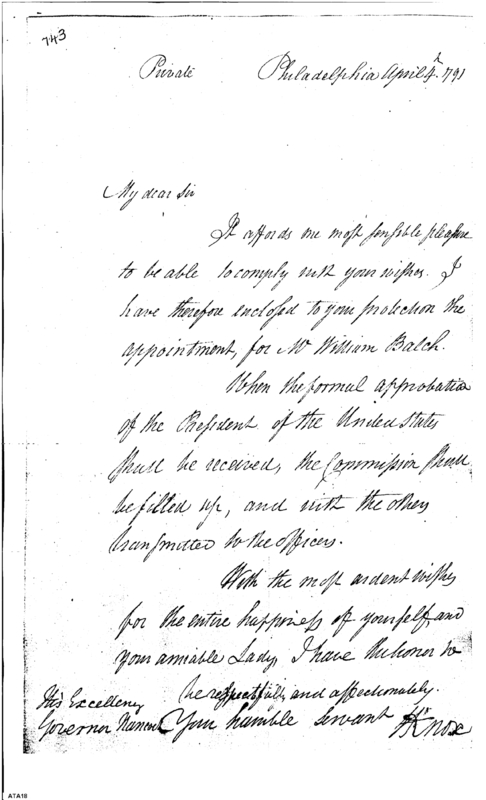 743
Private Philadelphia April 4th 1791
My dear Sir
It affords me most sensible pleasure
to be able to comply with your wishes. I
have therefore enclosed to your protection the
appointment, for Mr William Balch.
When the formal approbation
of the President of the United States
shall be received, the Commission shall
be filled up, and with the others
transmitted to the officers.
With the most ardent wishes
for the entire happiness of yourself and
your amiable Lady, I have the honor to
be respectfully and affectionately.
Your humble Servant
HKnox
His Excellency
Governor
ATA18